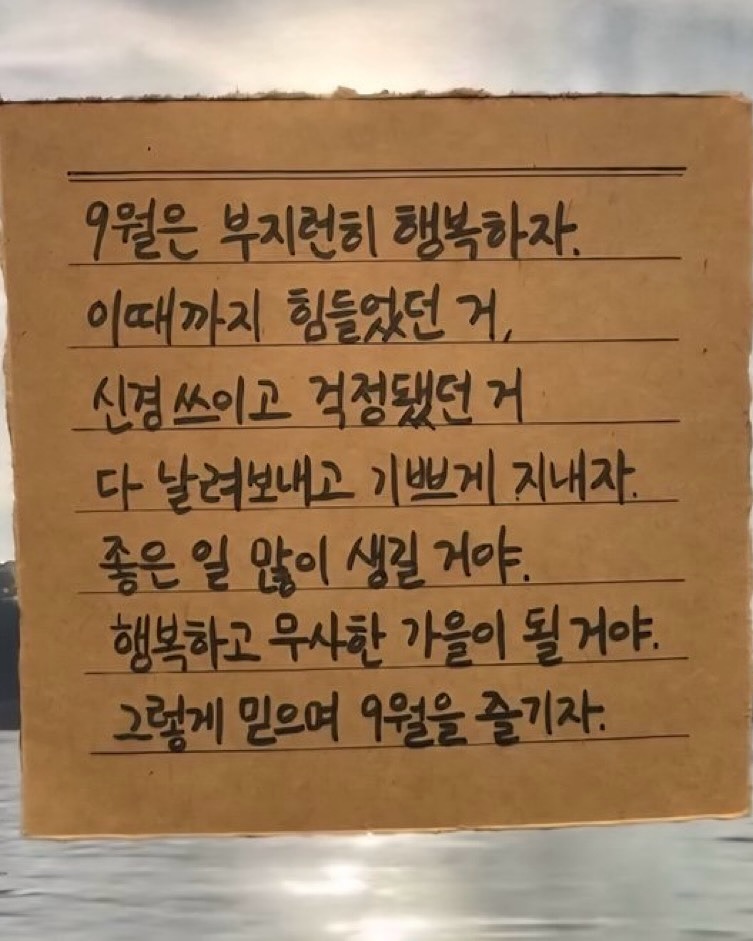 9월은 부지런히 행복하자.
이때까지 힘들었던 거,
신경쓰이고 걱정됐던 거
다 날려보내고 기쁘게 지내자.
좋은 일 많이 생길 거야.
행복하고 무사한 가을이 될 거야.
그렇게 믿으며 9월을 즐기자.